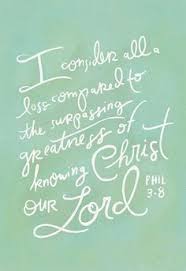 I consider all a
loss compared to
the surpassing
greatness of
knowing Christ
OUR Lord
PHIL
3-8